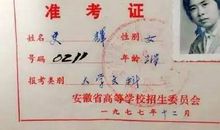 准考证
姓名 史辉 性别 女
号码 0211 年龄
报考类别 人学文科
安徽省高等学校招生委员会
一九七七年十二月